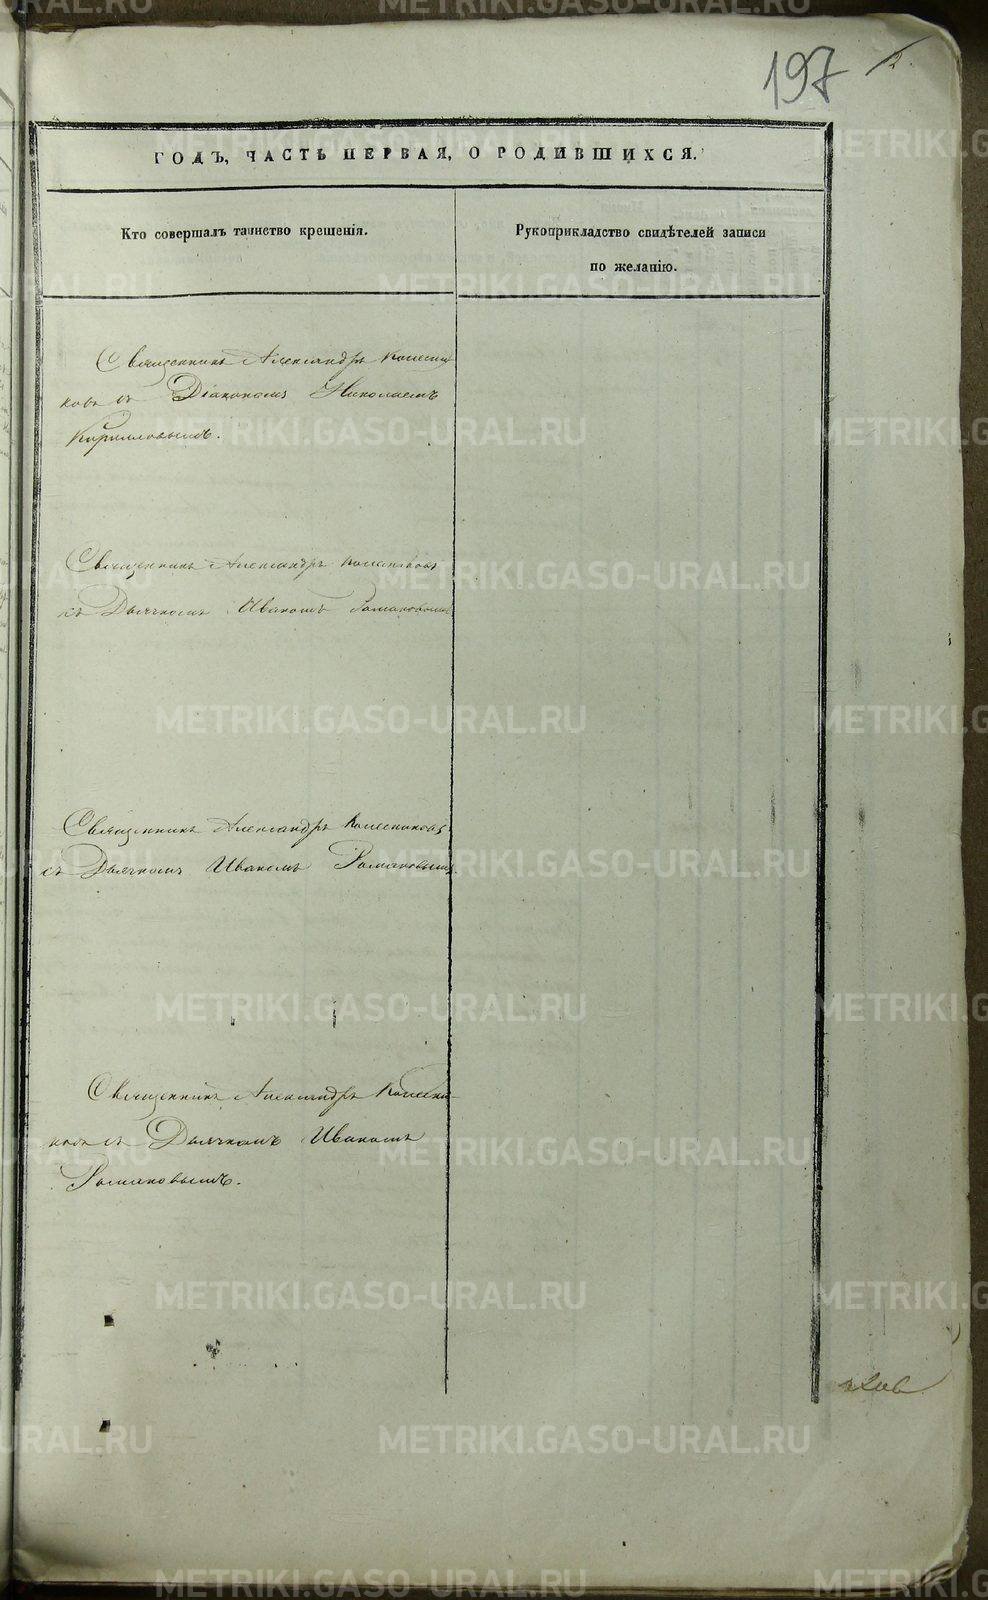 197
2.
ГОДЪ, ЧАСТЬ ПЕРВАЯ, О РОДИВШИХСЯ.
Кто совершалъ таинство крещенія.
Рукоприкладство свидѣтелей записи
по желанію.
Священникъ Александръ Колесни
ковъ съ Діакономъ Николаемъ
Кирилловымъ.
Священникъ Александръ Колесниковъ
съ Дьячкомъ Иваномъ Романовымъ
Священникъ Александръ Колесниковъ
съ Дьячкомъ Иваномъ Романовымъ.
Священникъ Александръ Колесни-
ковъ съ Дьячкомъ Иваномъ
Романовымъ.
METRIKI.GASO-URAL.RU